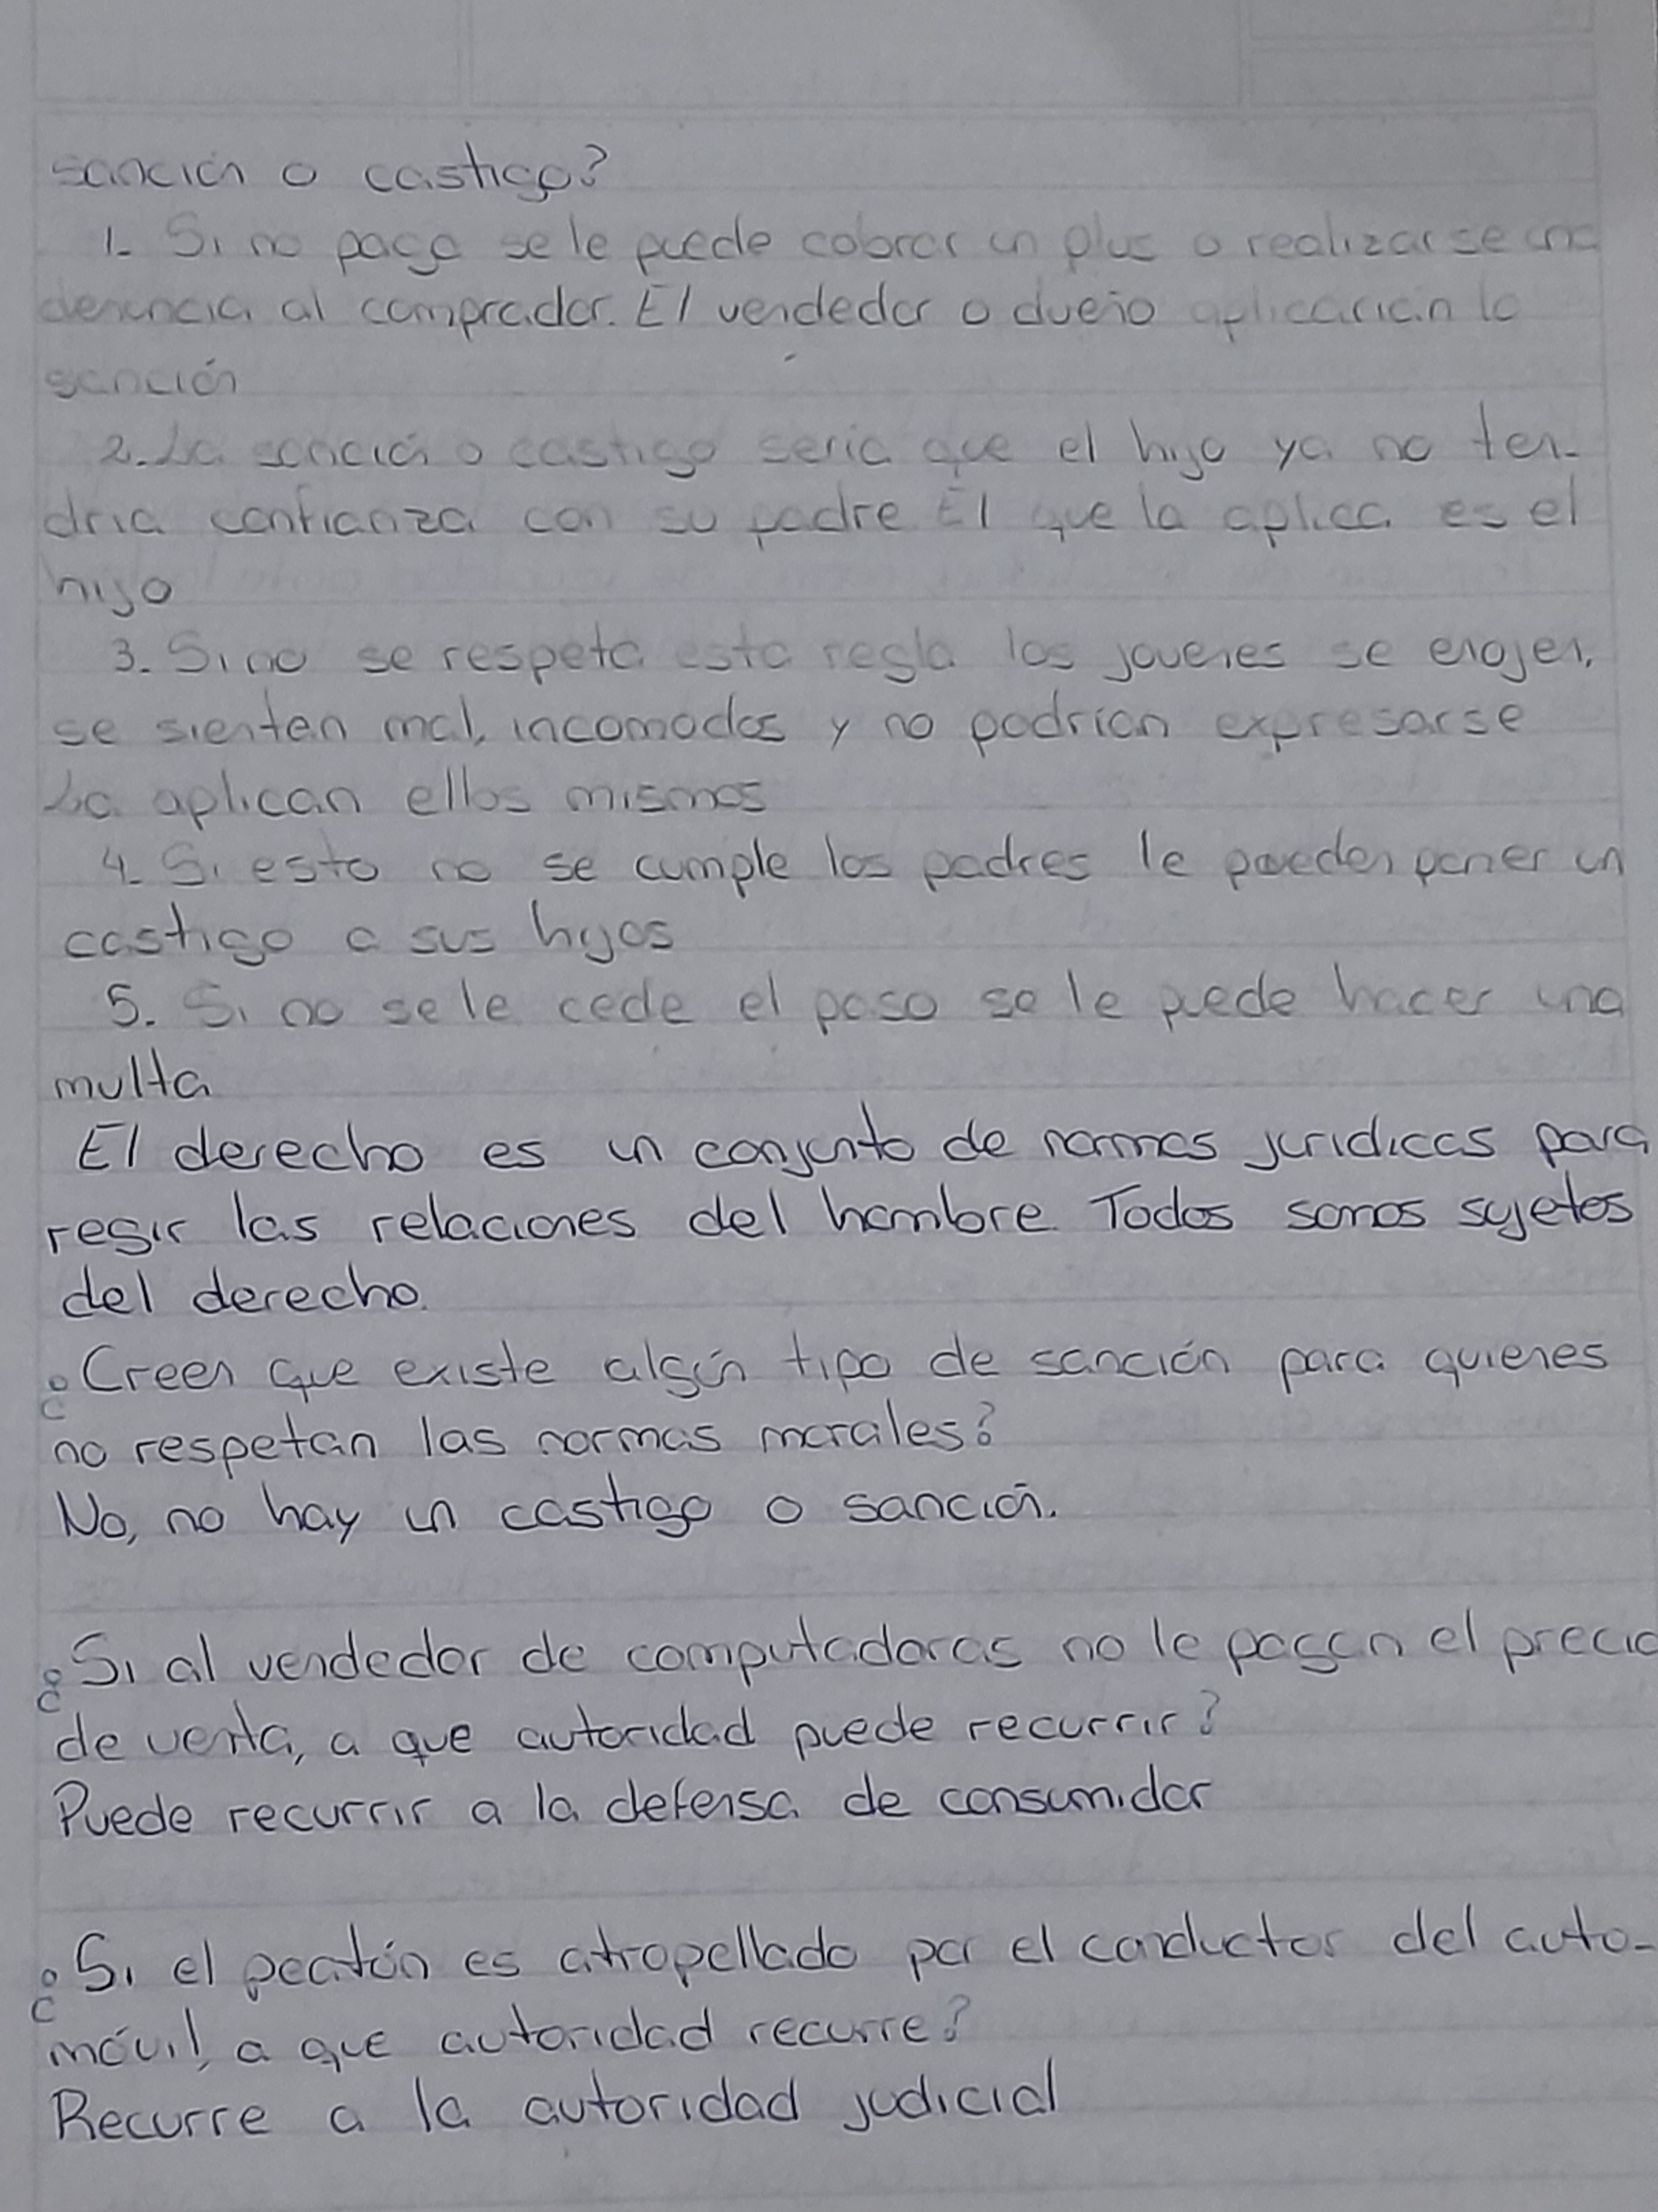 sanción o castigo?
1- Si no paga se le puede cobrar un plus o realizarse una
denuncia al comprador. El vendedor o dueño aplicarian la
sanción
2. La sanción o castigo seria que el hijo ya no ten-
dria confianza con su padre El que la aplica es el
hijo
3. Si no se respeta esta regla los jovenes se enojen,
se sienten mal, incomodos y no podrian expresarse
La aplican ellos mismos
4- Si esto no se cumple los padres le pueden poner un
castigo a sus hijos
5. Si no se le cede el paso se le puede hacer una
multa
El derecho es un conjunto de normas juridicas para
regir las relaciones del hombre Todos somos sujetos
del derecho.
¿Creen que existe algún tipo de sanción para quienes
no respetan las normas morales?
No, no hay un castigo o sanción.
¿Si al vendedor de computadoras no le pagan el precio
de venta, a que autoridad puede recurrir?
Puede recurrir a la defensa de consumidor
¿Si el peatón es atropellado por el conductor del auto-
móvil, a que autoridad recurre?
Recurre a la autoridad judicial